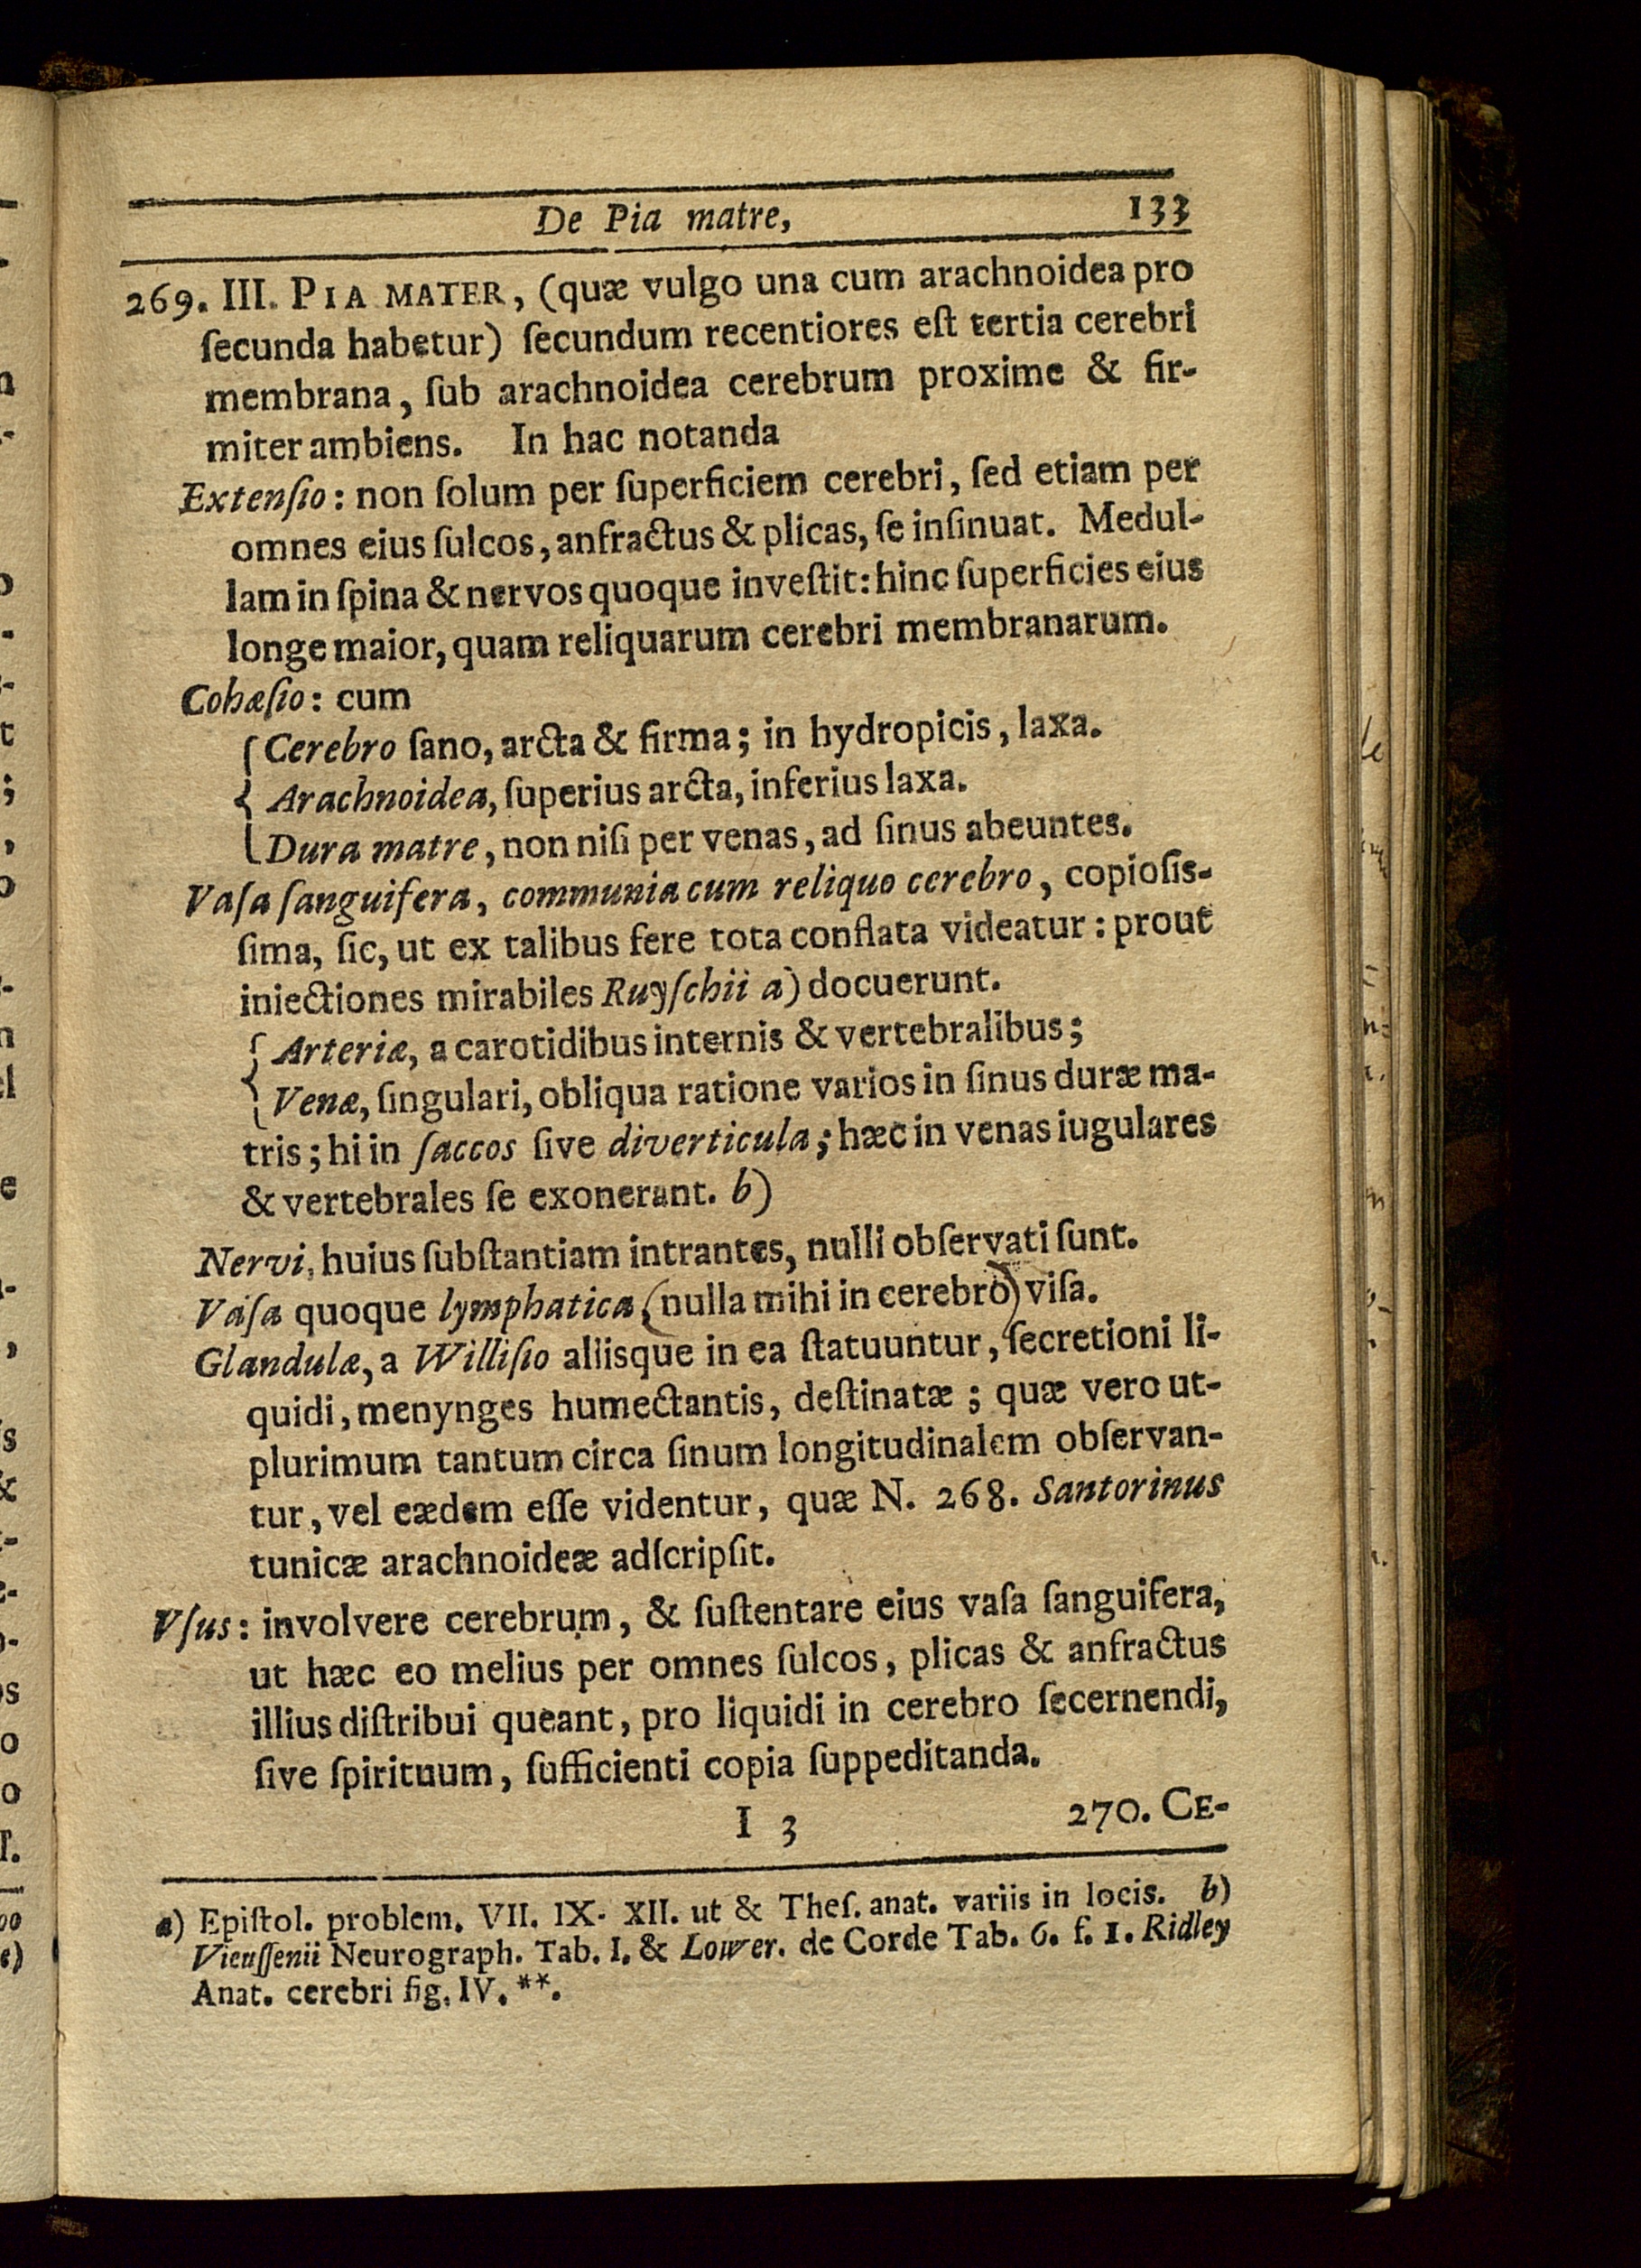 De Pia matre,
133
269. III. PIA MATER, (quæ vulgo una cum arachnoidea pro
ſecunda habetur) ſecundum recentiores eſt tertia cerebri
membrana, ſub arachnoidea cerebrum proxime & fir-
miter ambiens. In hac notanda
Extenſio: non ſolum per ſuperficiem cerebri, ſed etiam per
omnes eius ſulcos, anfractus & plicas, ſe inſinuat. Medul-
lam in ſpina & nervos quoque inveſtit: hinc ſuperficies eius
longe maior, quam reliquarum cerebri membranarum.
Cohæſio: cum
Cerebro ſano, arcta & firma; in hydropicis, laxa.
Arachnoidea, ſuperius arcta, inferius laxa.
Dura matre, non niſi per venas, ad ſinus abeuntes.
Vaſa ſanguifera, communia cum reliquo cerebro, copioſis-
ſima, ſic, ut ex talibus fere tota conflata videatur: prout
iniectiones mirabiles Ruyſchii a) docuerunt.
Arteriæ, a carotidibus internis & vertebralibus;
Venæ, ſingulari, obliqua ratione varios in ſinus duræ ma-
tris; hi in ſaccos ſive diverticula; hæc in venas iugulares
& vertebrales ſe exonerant. b)
Nervi, huius ſubſtantiam intrantes, nulli obſervati ſunt.
Vaſa quoque lymphatica (nulla mihi in cerebro) viſa.
Glandulæ, a Williſio aliisque in ea ſtatuuntur, ſecretioni li-
quidi, menynges humectantis, deſtinatæ; quæ vero ut-
plurimum tantum circa ſinum longitudinalem obſervan-
tur, vel eædem eſſe videntur, quæ N. 268. Santorinus
tunicæ arachnoideæ adſcripſit.
Vſus: involvere cerebrum, & ſuſtentare eius vaſa ſanguifera,
ut hæc eo melius per omnes ſulcos, plicas & anfractus
illius diſtribui queant, pro liquidi in cerebro ſecernendi,
ſive ſpirituum, ſufficienti copia ſuppeditanda.
I 3
270. CE-
a) Epiſtol. problem. VII. IX. XII. ut & Theſ. anat. variis in locis. b)
Vieuſſenii Neurograph. Tab. I. & Lower. de Corde Tab. 6. f. 1. Ridley
Anat. cerebri fig. IV. **.